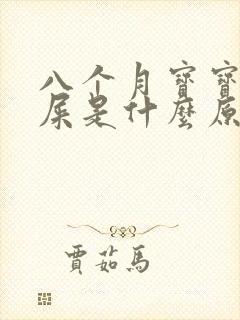 八个月寶寶
屎是什麼原
賈茹馬